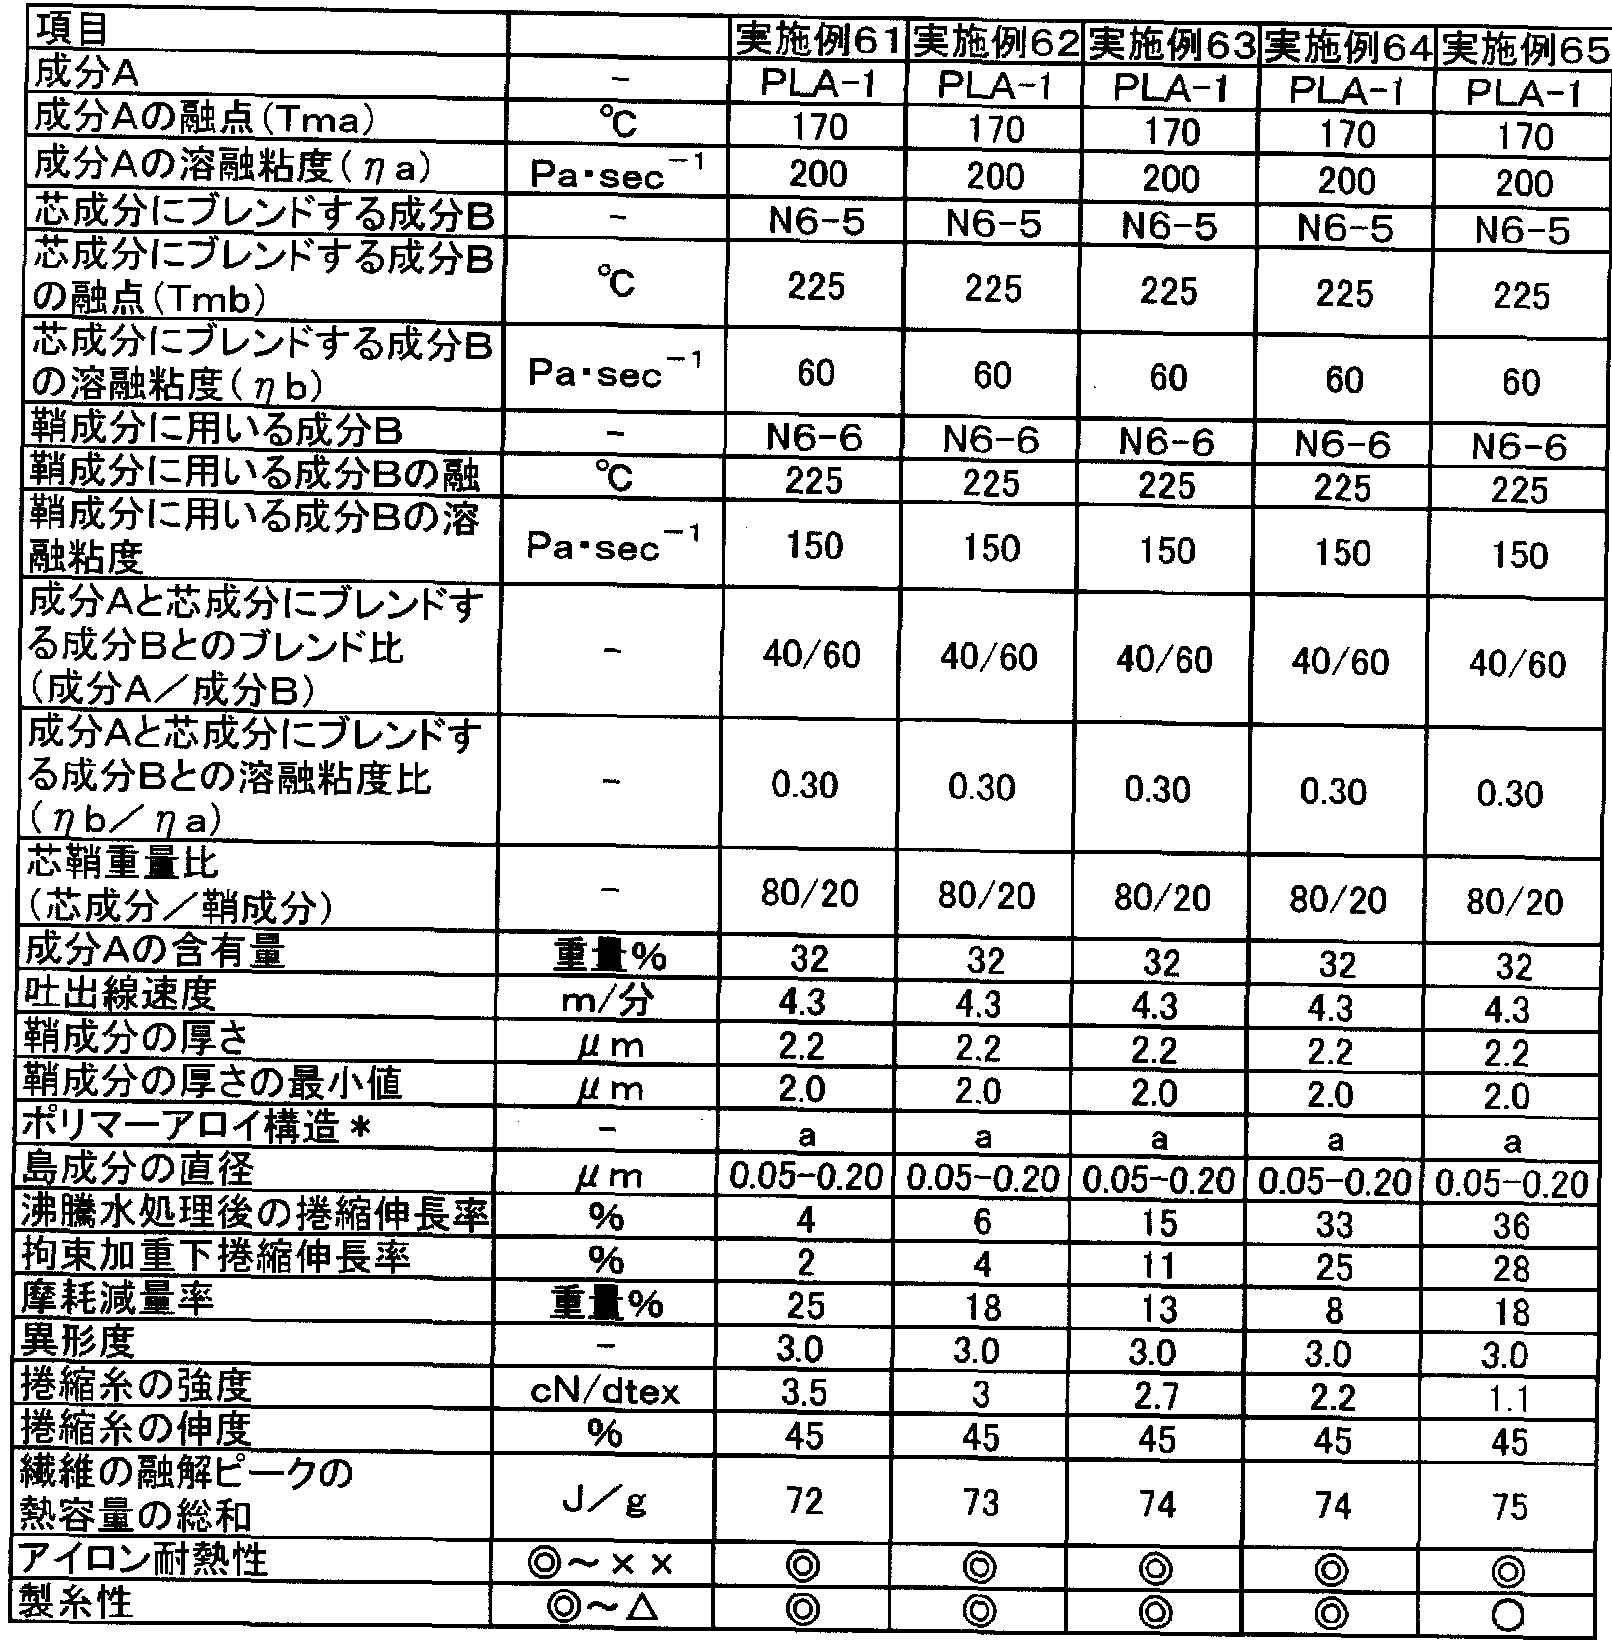 項目 実施例61 実施例62 実施例63 実施例64 実施例65
成分A - PLA-1 PLA-1 PLA-1 PLA-1 PLA-1
成分Aの融点(Tma) ℃ 170 170 170 170 170
成分Aの溶融粘度(ηa) Pa・sec⁻¹ 200 200 200 200 200
芯成分にブレンドする成分B - N6-5 N6-5 N6-5 N6-5 N6-5
芯成分にブレンドする成分B
の融点(Tmb) ℃ 225 225 225 225 225
芯成分にブレンドする成分B
の溶融粘度(ηb) Pa・sec⁻¹ 60 60 60 60 60
鞘成分に用いる成分B - N6-6 N6-6 N6-6 N6-6 N6-6
鞘成分に用いる成分Bの融 ℃ 225 225 225 225 225
鞘成分に用いる成分Bの溶
融粘度 Pa・sec⁻¹ 150 150 150 150 150
成分Aと芯成分にブレンドす
る成分Bとのブレンド比
(成分A／成分B) - 40/60 40/60 40/60 40/60 40/60
成分Aと芯成分にブレンドす
る成分Bとの溶融粘度比
(ηb／ηa) - 0.30 0.30 0.30 0.30 0.30
芯鞘重量比
(芯成分／鞘成分) - 80/20 80/20 80/20 80/20 80/20
成分Aの含有量 重量% 32 32 32 32 32
吐出線速度 m/分 4.3 4.3 4.3 4.3 4.3
鞘成分の厚さ μm 2.2 2.2 2.2 2.2 2.2
鞘成分の厚さの最小値 μm 2.0 2.0 2.0 2.0 2.0
ポリマーアロイ構造* - a a a a a
島成分の直径 μm 0.05-0.20 0.05-0.20 0.05-0.20 0.05-0.20 0.05-0.20
沸騰水処理後の捲縮伸長率 % 4 6 15 33 36
拘束加重下捲縮伸長率 % 2 4 11 25 28
摩耗減量率 重量% 25 18 13 8 18
異形度 - 3.0 3.0 3.0 3.0 3.0
捲縮糸の強度 cN/dtex 3.5 3 2.7 2.2 1.1
捲縮糸の伸度 % 45 45 45 45 45
繊維の融解ピークの
熱容量の総和 J／g 72 73 74 74 75
アイロン耐熱性 ◎～×× ◎ ◎ ◎ ◎ ◎
製糸性 ◎～△ ◎ ◎ ◎ ◎ ○